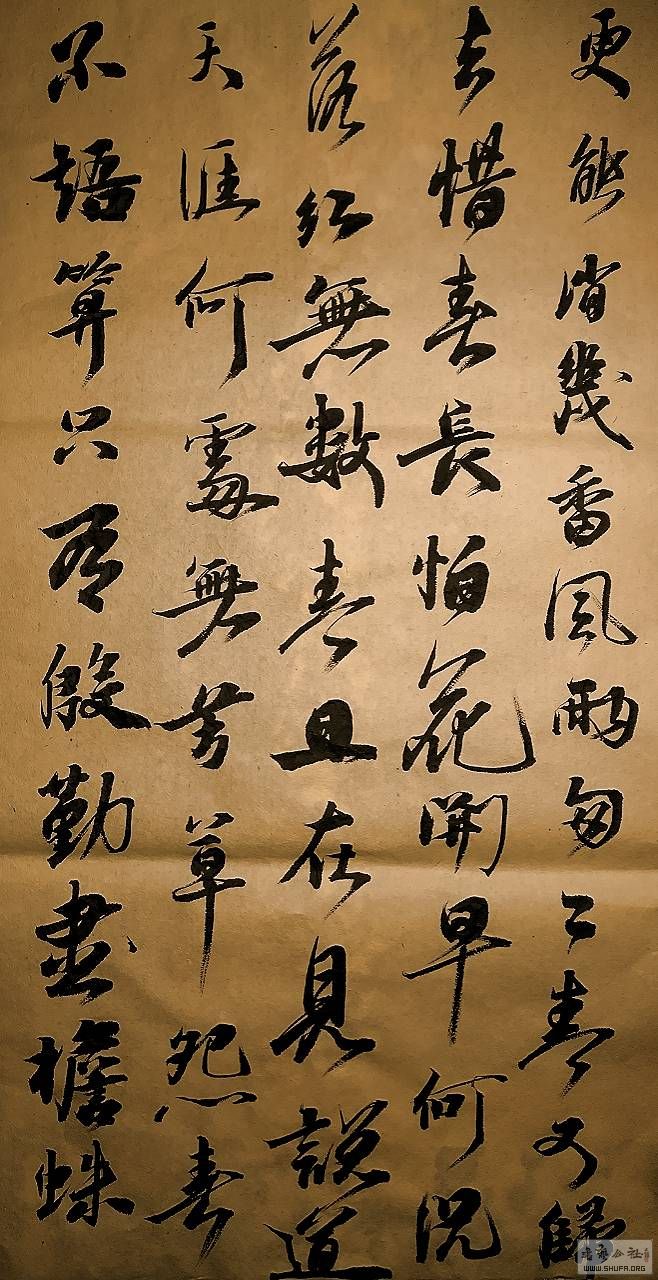 更能消幾番風雨匆〻春又歸
去惜春長怕花開早何況
落紅無數春且在見說道
天涯何處無芳草怨春
不語算只有殷勤畫檐蛛
公社
WWW.SHUFA.ORG